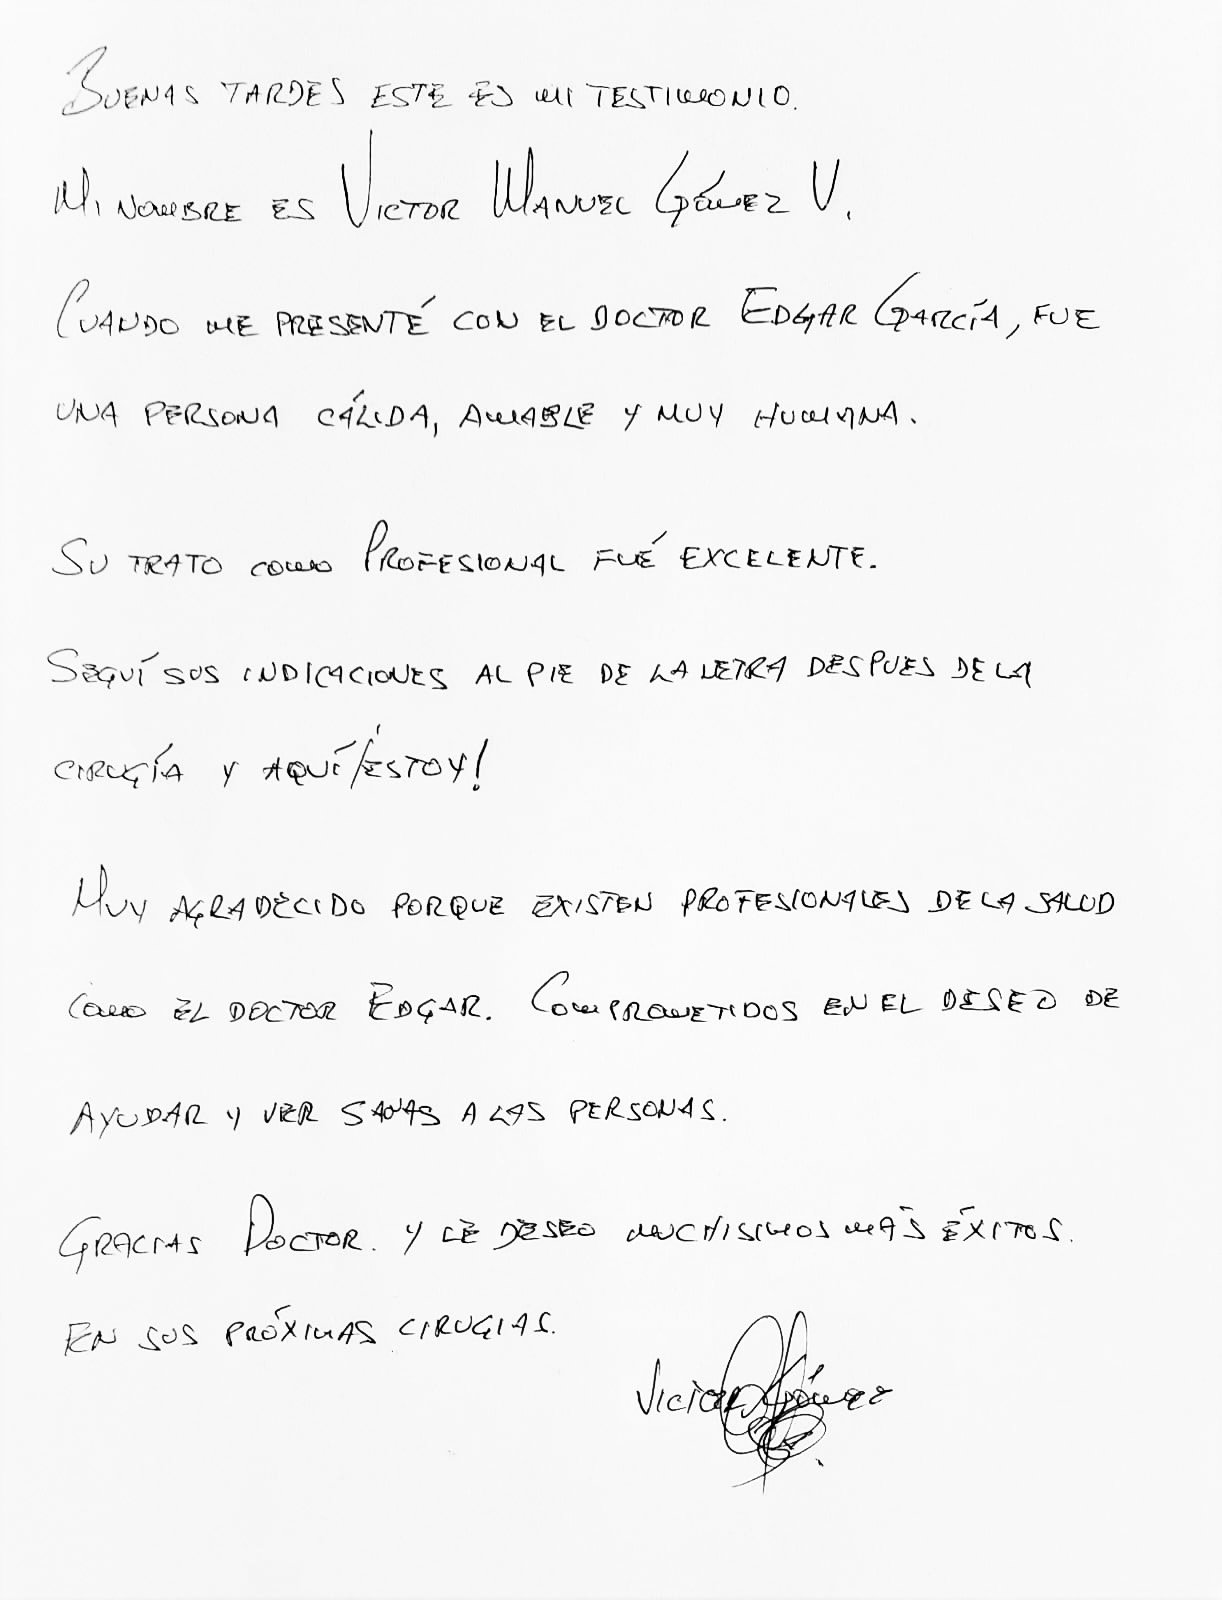 Buenas tardes este es mi testimonio.
Mi nombre es Victor Manuel Gómez V.
Cuando me presenté con el doctor Edgar García, fue
una persona cálida, amable y muy humana.
Su trato como Profesional fué excelente.
Seguí sus indicaciones al pie de la letra despues de la
cirugía y aquí ¡estoy!
Muy agradecido porque existen profesionales de la salud
como el doctor Edgar. Comprometidos en el deseo de
ayudar y ver sanas a las personas.
Gracias Doctor. y le deseo muchisimos más éxitos.
En sus próximas cirugias.
Victor Gómez